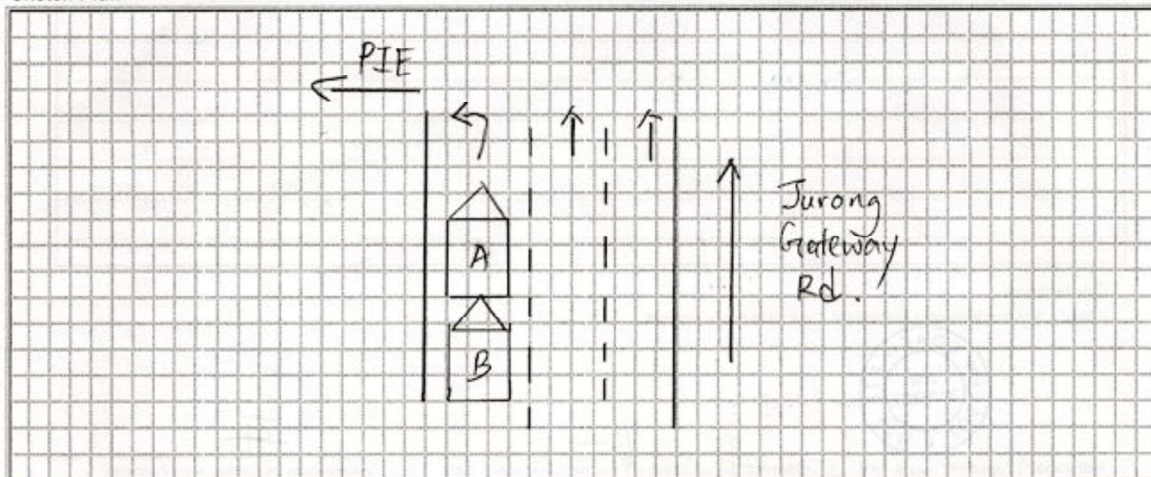 PIE
A
B
Jurong
Gateway
Rd.